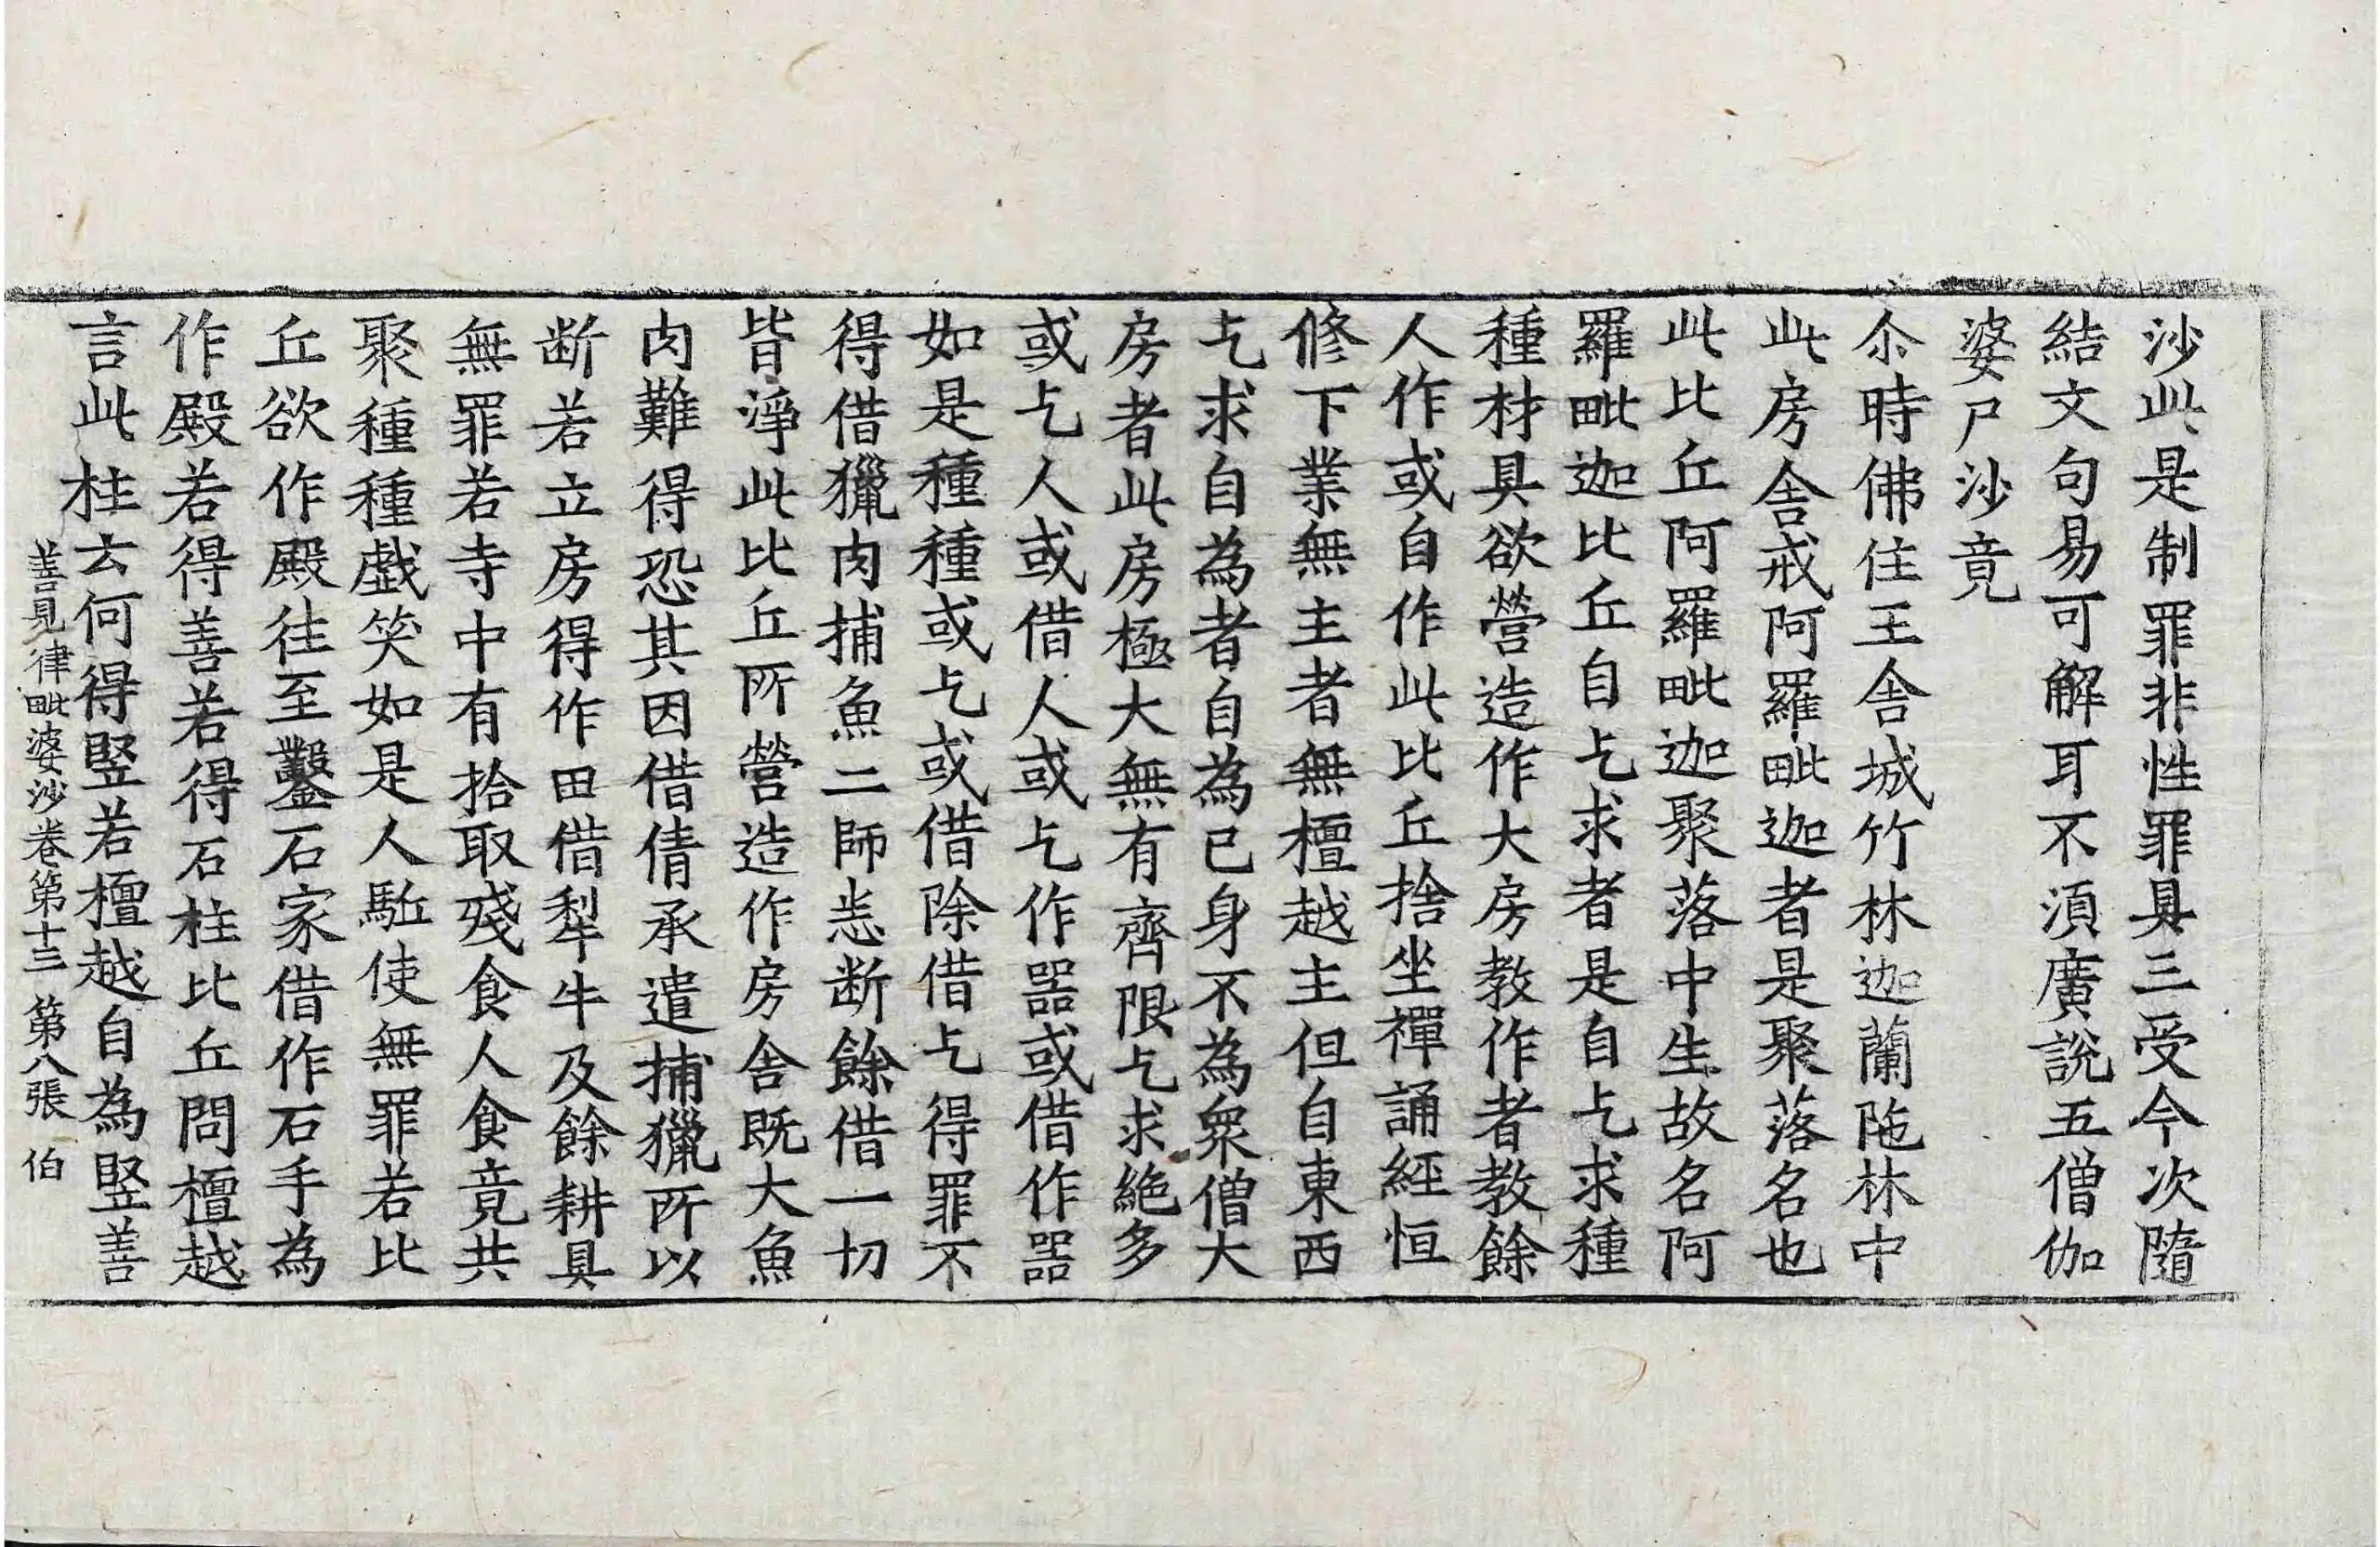 沙此是制罪非性罪具三受今次隨
結文句易可解耳不湏廣說五僧伽
婆尸沙竟
尒時佛住王舍城竹林迦蘭陁林中
此房舍戒阿羅毗迦者是聚落名也
此比丘阿羅毗迦聚落中生故名阿
羅毗迦比丘自乞求者是自乞求種
種材具欲營造作大房教作者教餘
人作或自作此比丘捨坐禪誦經恒
修下業無主者無檀越主但自東西
乞求自為者自為己身不為衆僧大
房者此房極大無有齊限乞求絶多
或乞人或借人或乞作器或借作器
如是種種或乞或借除借乞得罪不
得借獵肉捕魚二師恙断餘借一切
皆淨此比丘所營造作房舍既大魚
肉難得恐其因借倩承遣捕獵所以
断若立房得作田借犁牛及餘耕具
無罪若寺中有拾取殘食人食竟共
聚種種戲笑如是人駈使無罪若比
丘欲作殿往至鑿石家借作石手為
作殿若得善若得石柱比丘問檀越
言此柱云何得竪若檀越自為竪善
善見律毗婆沙卷第十三 第八張 伯